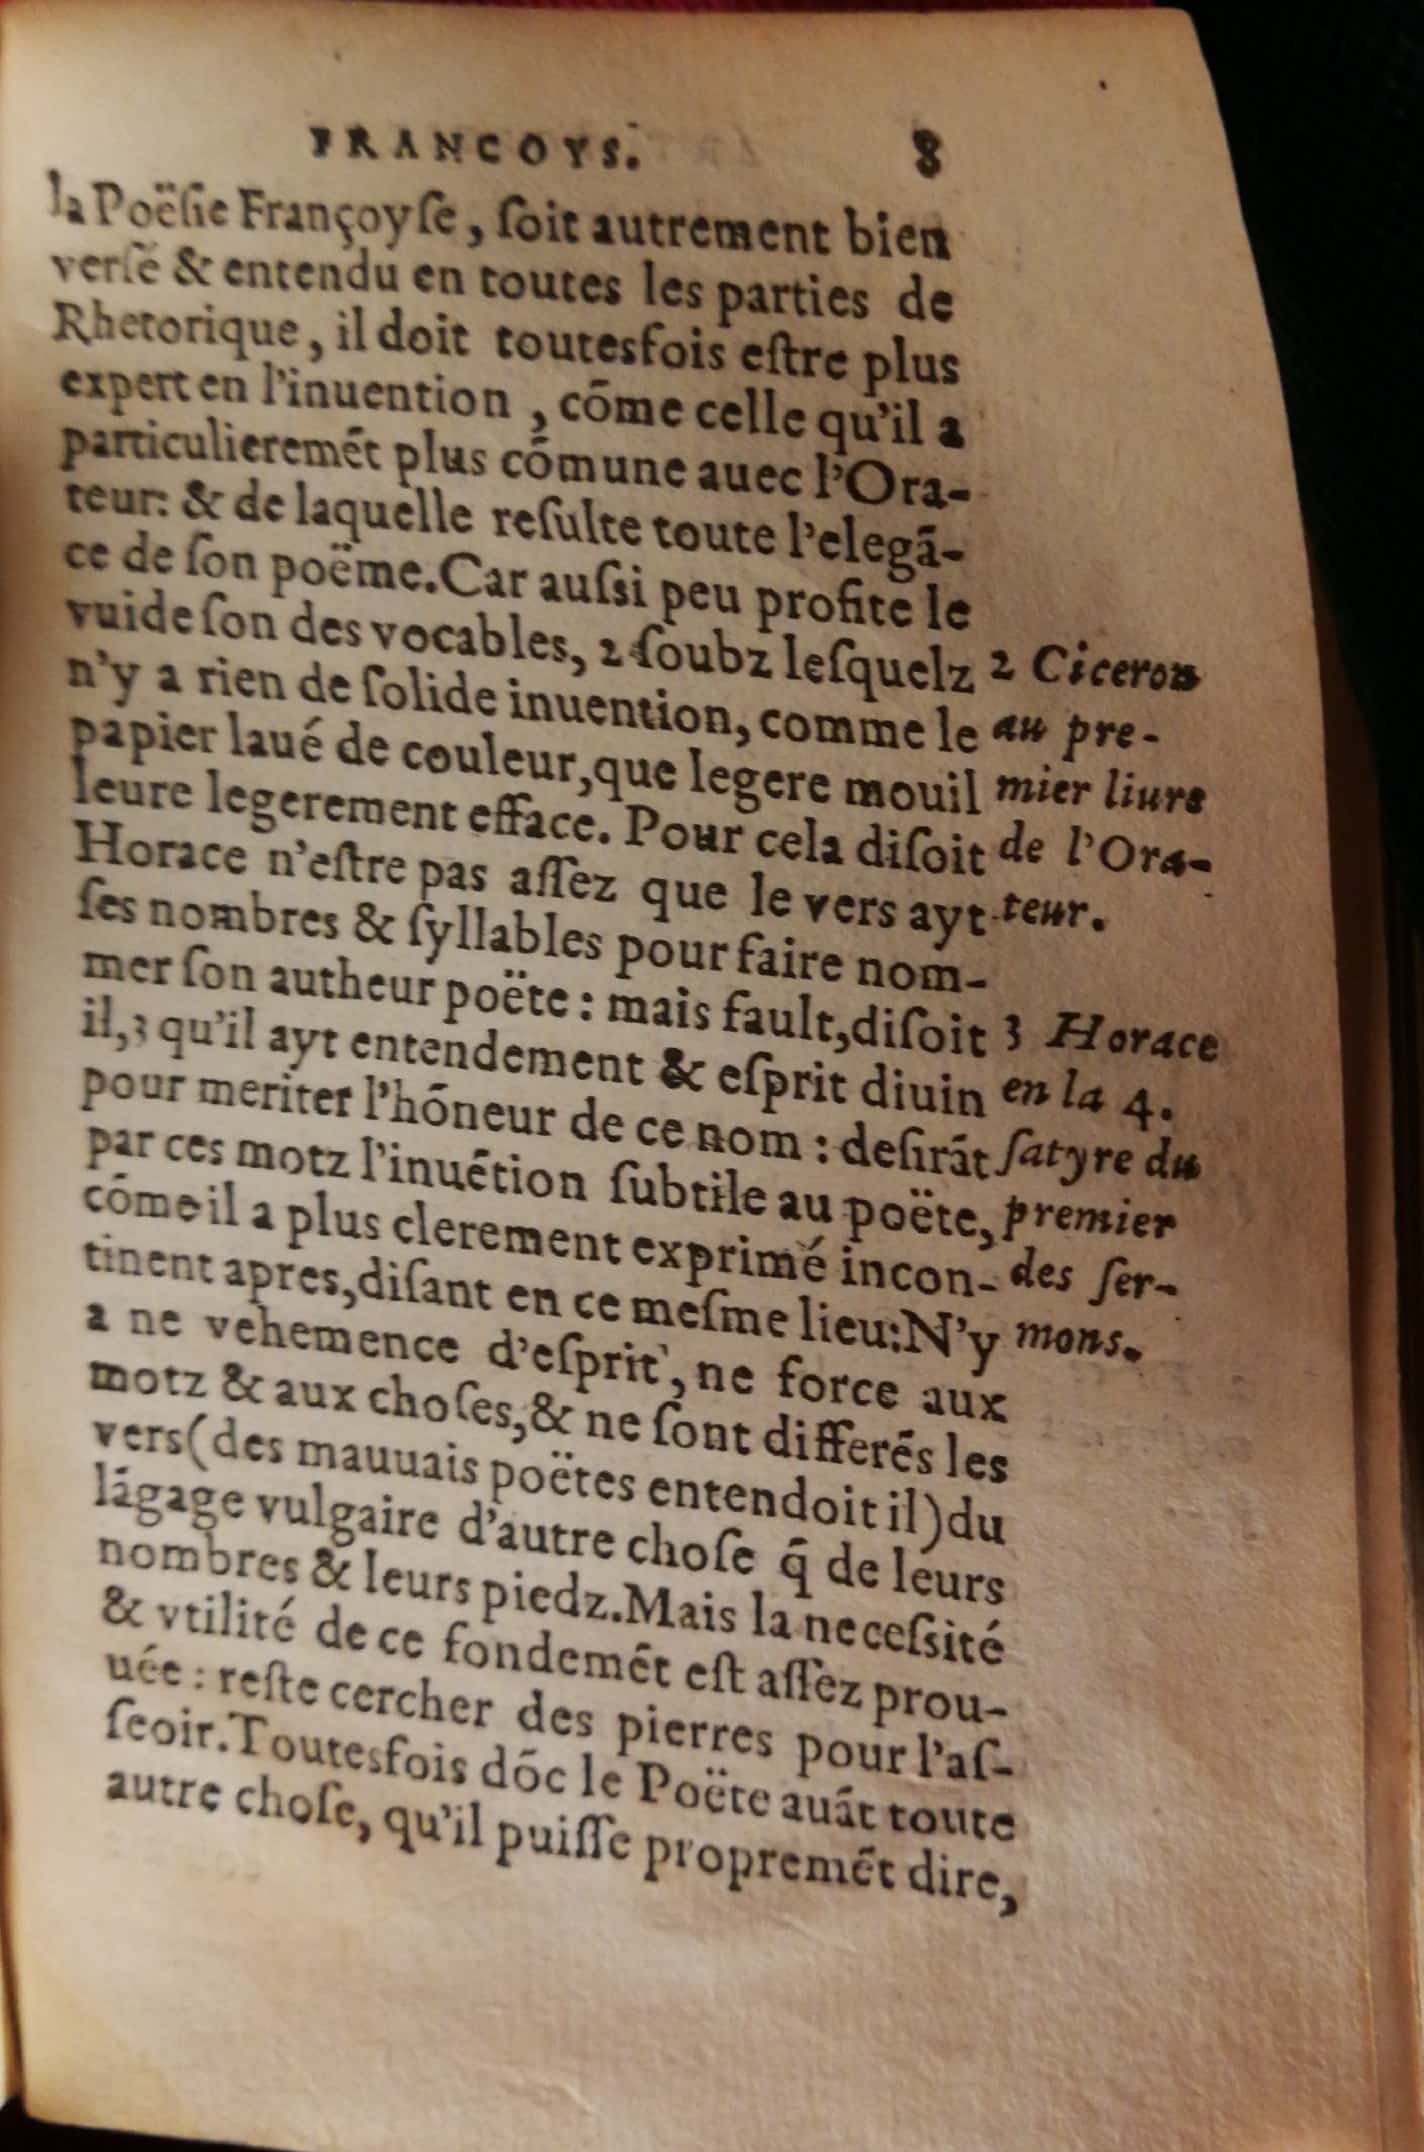 FRANCOYS. 8
la Poësie Françoyſe, ſoit autrement bien
verſé & entendu en toutes les parties de
Rhetorique, il doit toutesfois eſtre plus
expert en l'inuention, cõme celle qu'il a
particulieremẽt plus cõmune auec l'Ora-
teur: & de laquelle reſulte toute l'elegã-
ce de ſon poëme. Car auſsi peu profite le
vuide ſon des vocables, 2 ſoubz leſquelz
n'y a rien de ſolide inuention, comme le
papier laué de couleur, que legere mouil
leure legerement efface. Pour cela diſoit
Horace n'eſtre pas aſſez que le vers ayt
ſes nombres & ſyllables pour faire nom-
mer ſon autheur poëte: mais fault, diſoit
il, 3 qu'il ayt entendement & eſprit diuin
pour meriter l'hõneur de ce nom: deſirãt
par ces motz l'inuẽtion ſubtile au poëte,
cõme il a plus clerement exprimé incon-
tinent apres, diſant en ce meſme lieu: N'y
a ne vehemence d'eſprit, ne force aux
motz & aux choſes, & ne ſont differẽs les
vers (des mauuais poëtes entendoit il) du
lãgage vulgaire d'autre choſe q̃ de leurs
nombres & leurs piedz. Mais la neceſsité
& vtilité de ce fondemẽt eſt aſſez prou-
uée: reſte cercher des pierres pour l'aſ-
ſeoir. Toutesfois dõc le Poëte auãt toute
autre choſe, qu'il puiſſe propremẽt dire,
2 Ciceron
au pre-
mier liure
de l'Ora-
teur.
3 Horace
en la 4.
ſatyre du
premier
des ſer-
mons.